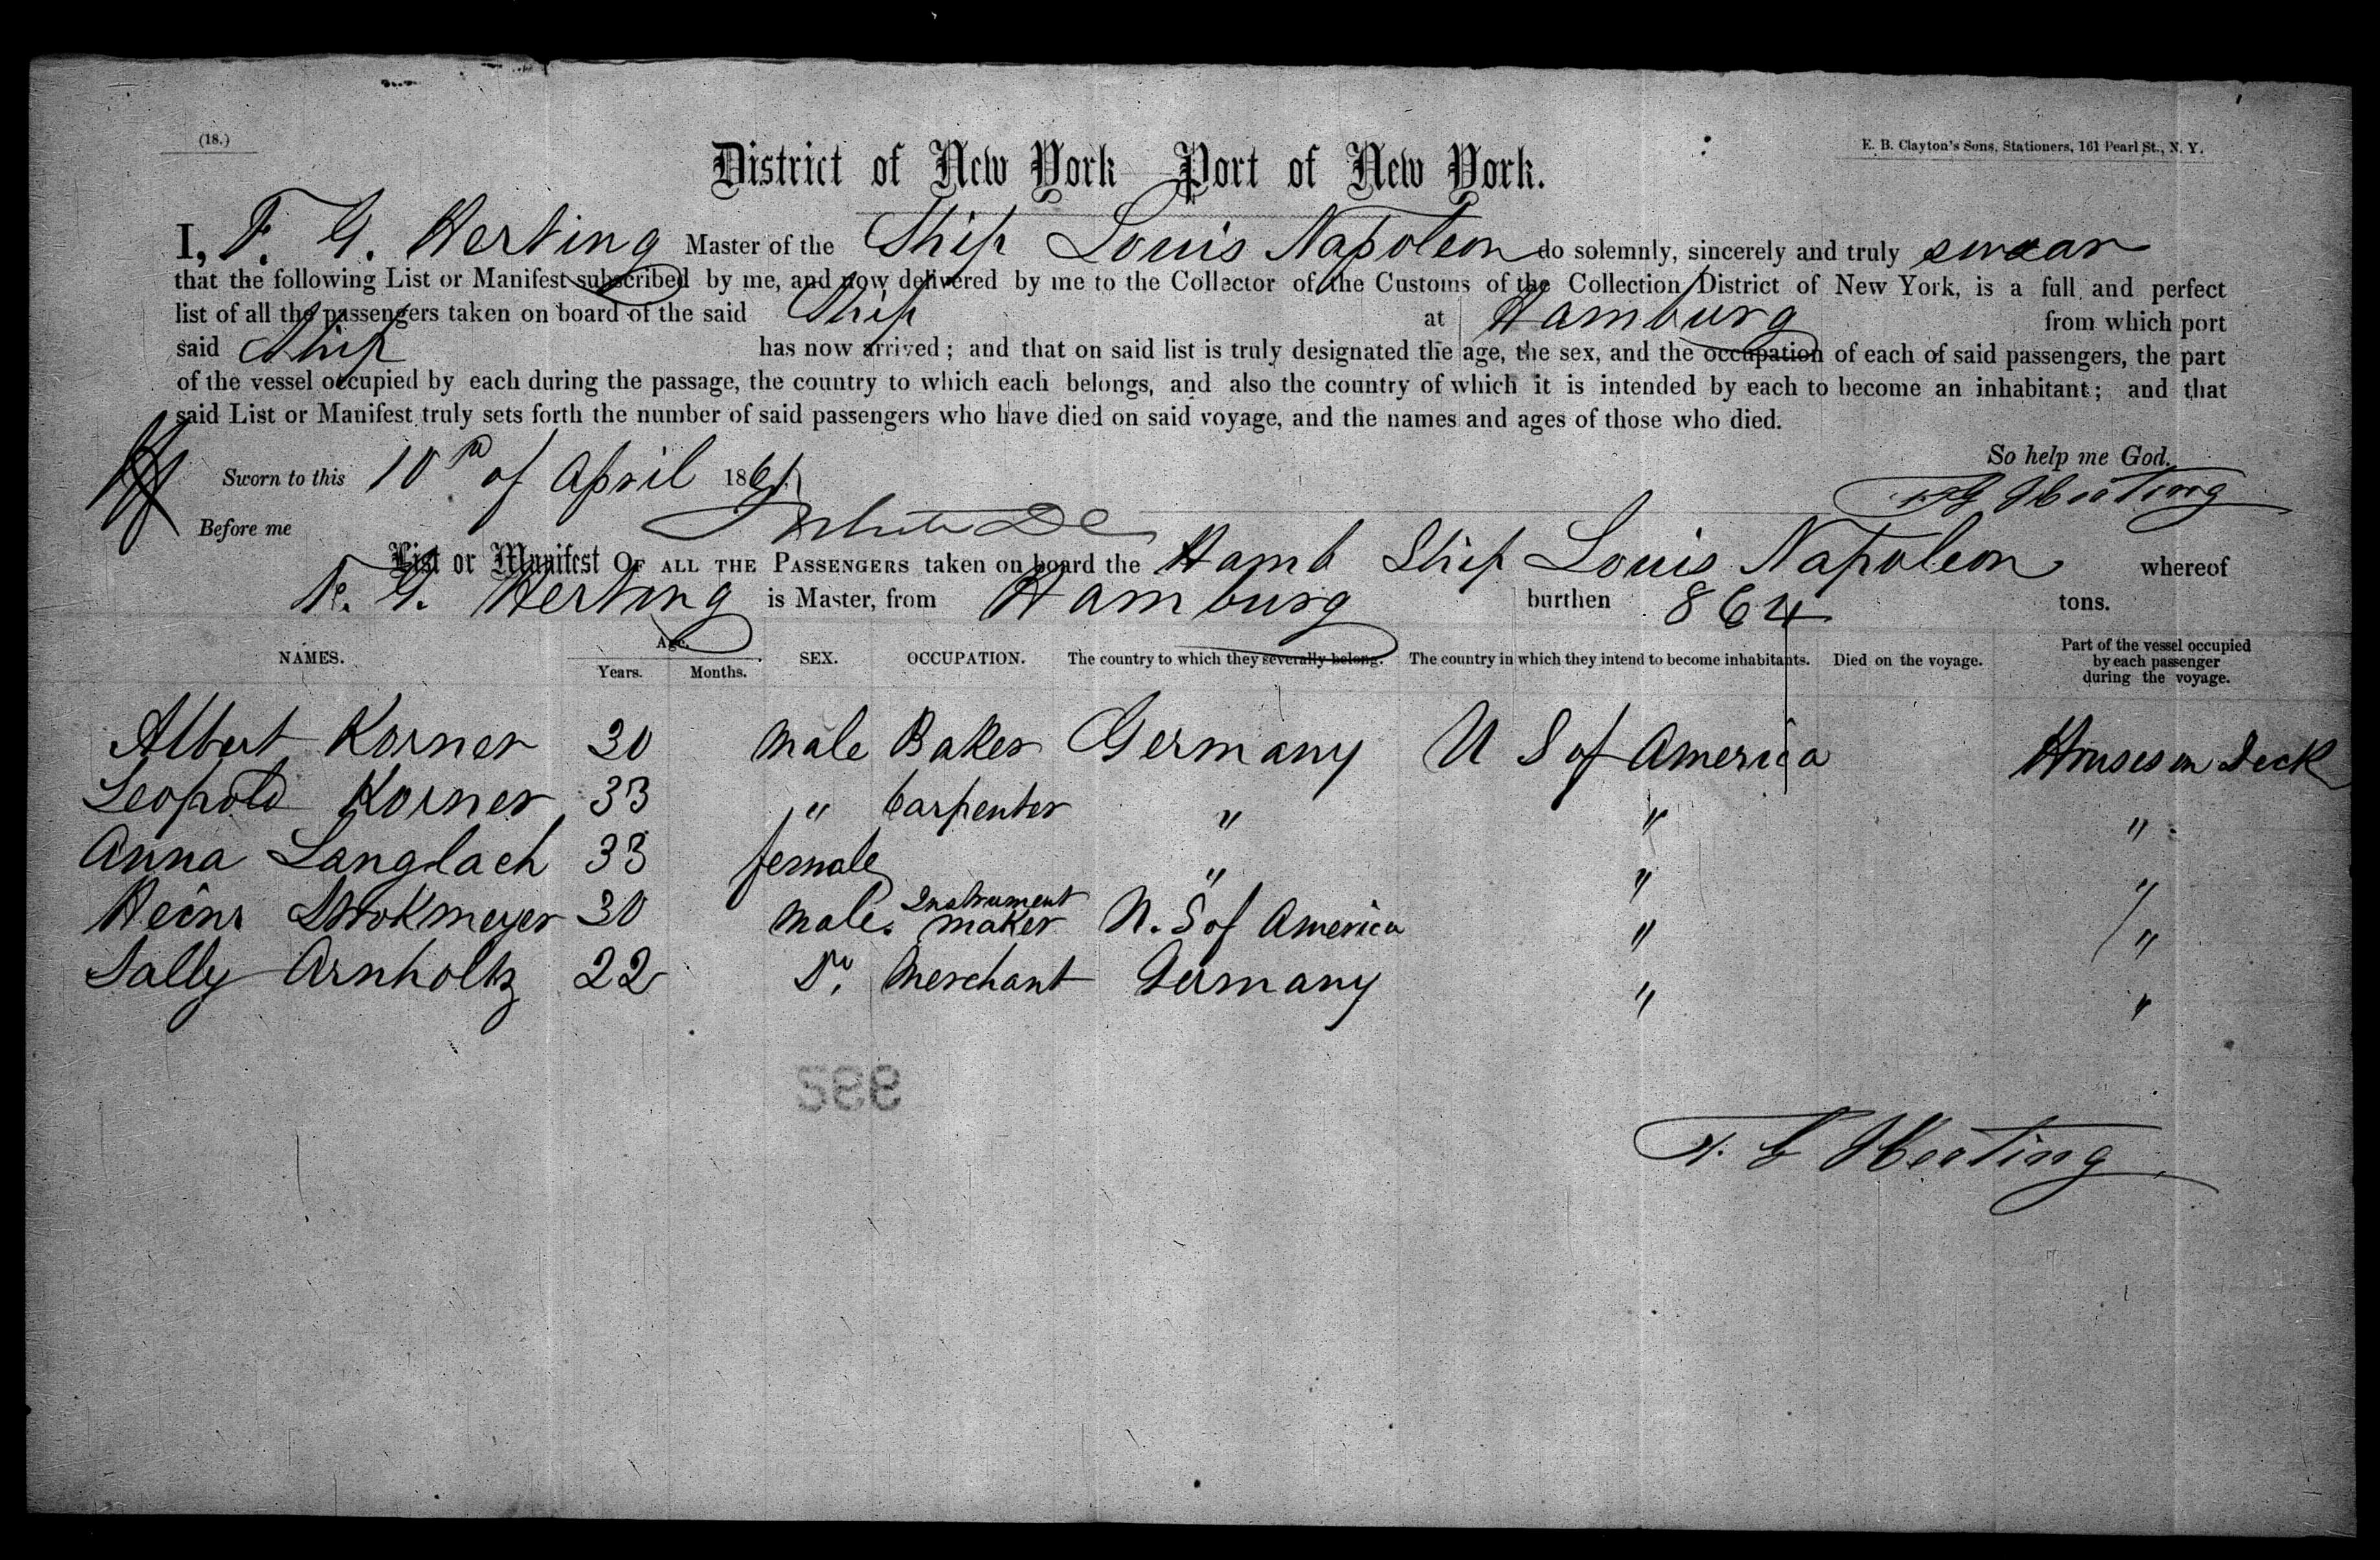 (18.)
E. B. Clayton's Sons, Stationers, 161 Pearl St., N. Y.
District of New York Port of New York.
I, F. G. Herting Master of the Ship Louis Napoleon do solemnly, sincerely and truly swear
that the following List or Manifest subscribed by me, and now delivered by me to the Collector of the Customs of the Collection District of New York, is a full and perfect
list of all the passengers taken on board of the said Ship at Hamburg from which port
said Ship has now arrived; and that on said list is truly designated the age, the sex, and the occupation of each of said passengers, the part
of the vessel occupied by each during the passage, the country to which each belongs, and also the country of which it is intended by each to become an inhabitant; and that
said List or Manifest truly sets forth the number of said passengers who have died on said voyage, and the names and ages of those who died.
So help me God.
Sworn to this 10 of April 1861 F G Herting
Before me
List or Manifest OF ALL THE PASSENGERS taken on board the Hamb Ship Louis Napoleon whereof
F. G. Herting is Master, from Hamburg burthen 864 tons.
NAMES. Age. Years. Months. SEX. OCCUPATION. The country to which they severally belong. The country in which they intend to become inhabitants. Died on the voyage. Part of the vessel occupied by each passenger during the voyage.
Albert Korner 30 male Baker Germany U S of America Houses on Deck
Leopold Korner 33 " Carpenter " " "
Anna Langlach 33 female " " "
Heinr 30 male. Instrument maker U. S of America " "
Sally Arnholtz 22 Do. Merchant Germany " "
F. G Herting